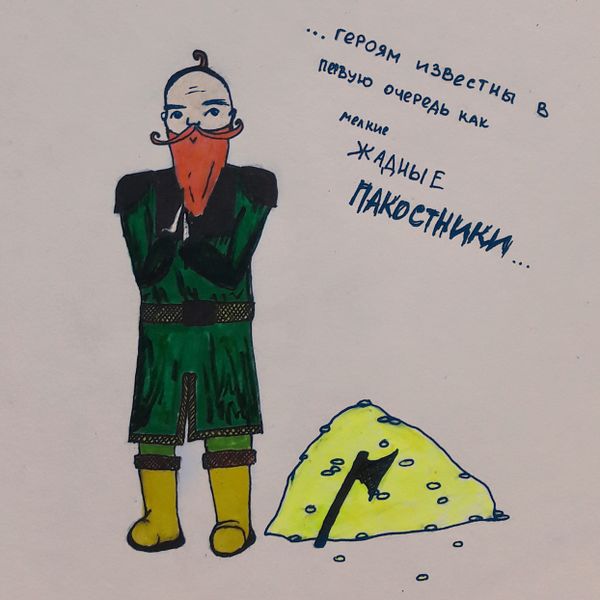 ... героям известны в
первую очередь как
мелкие
жадные
ПАКОСТНИКИ...